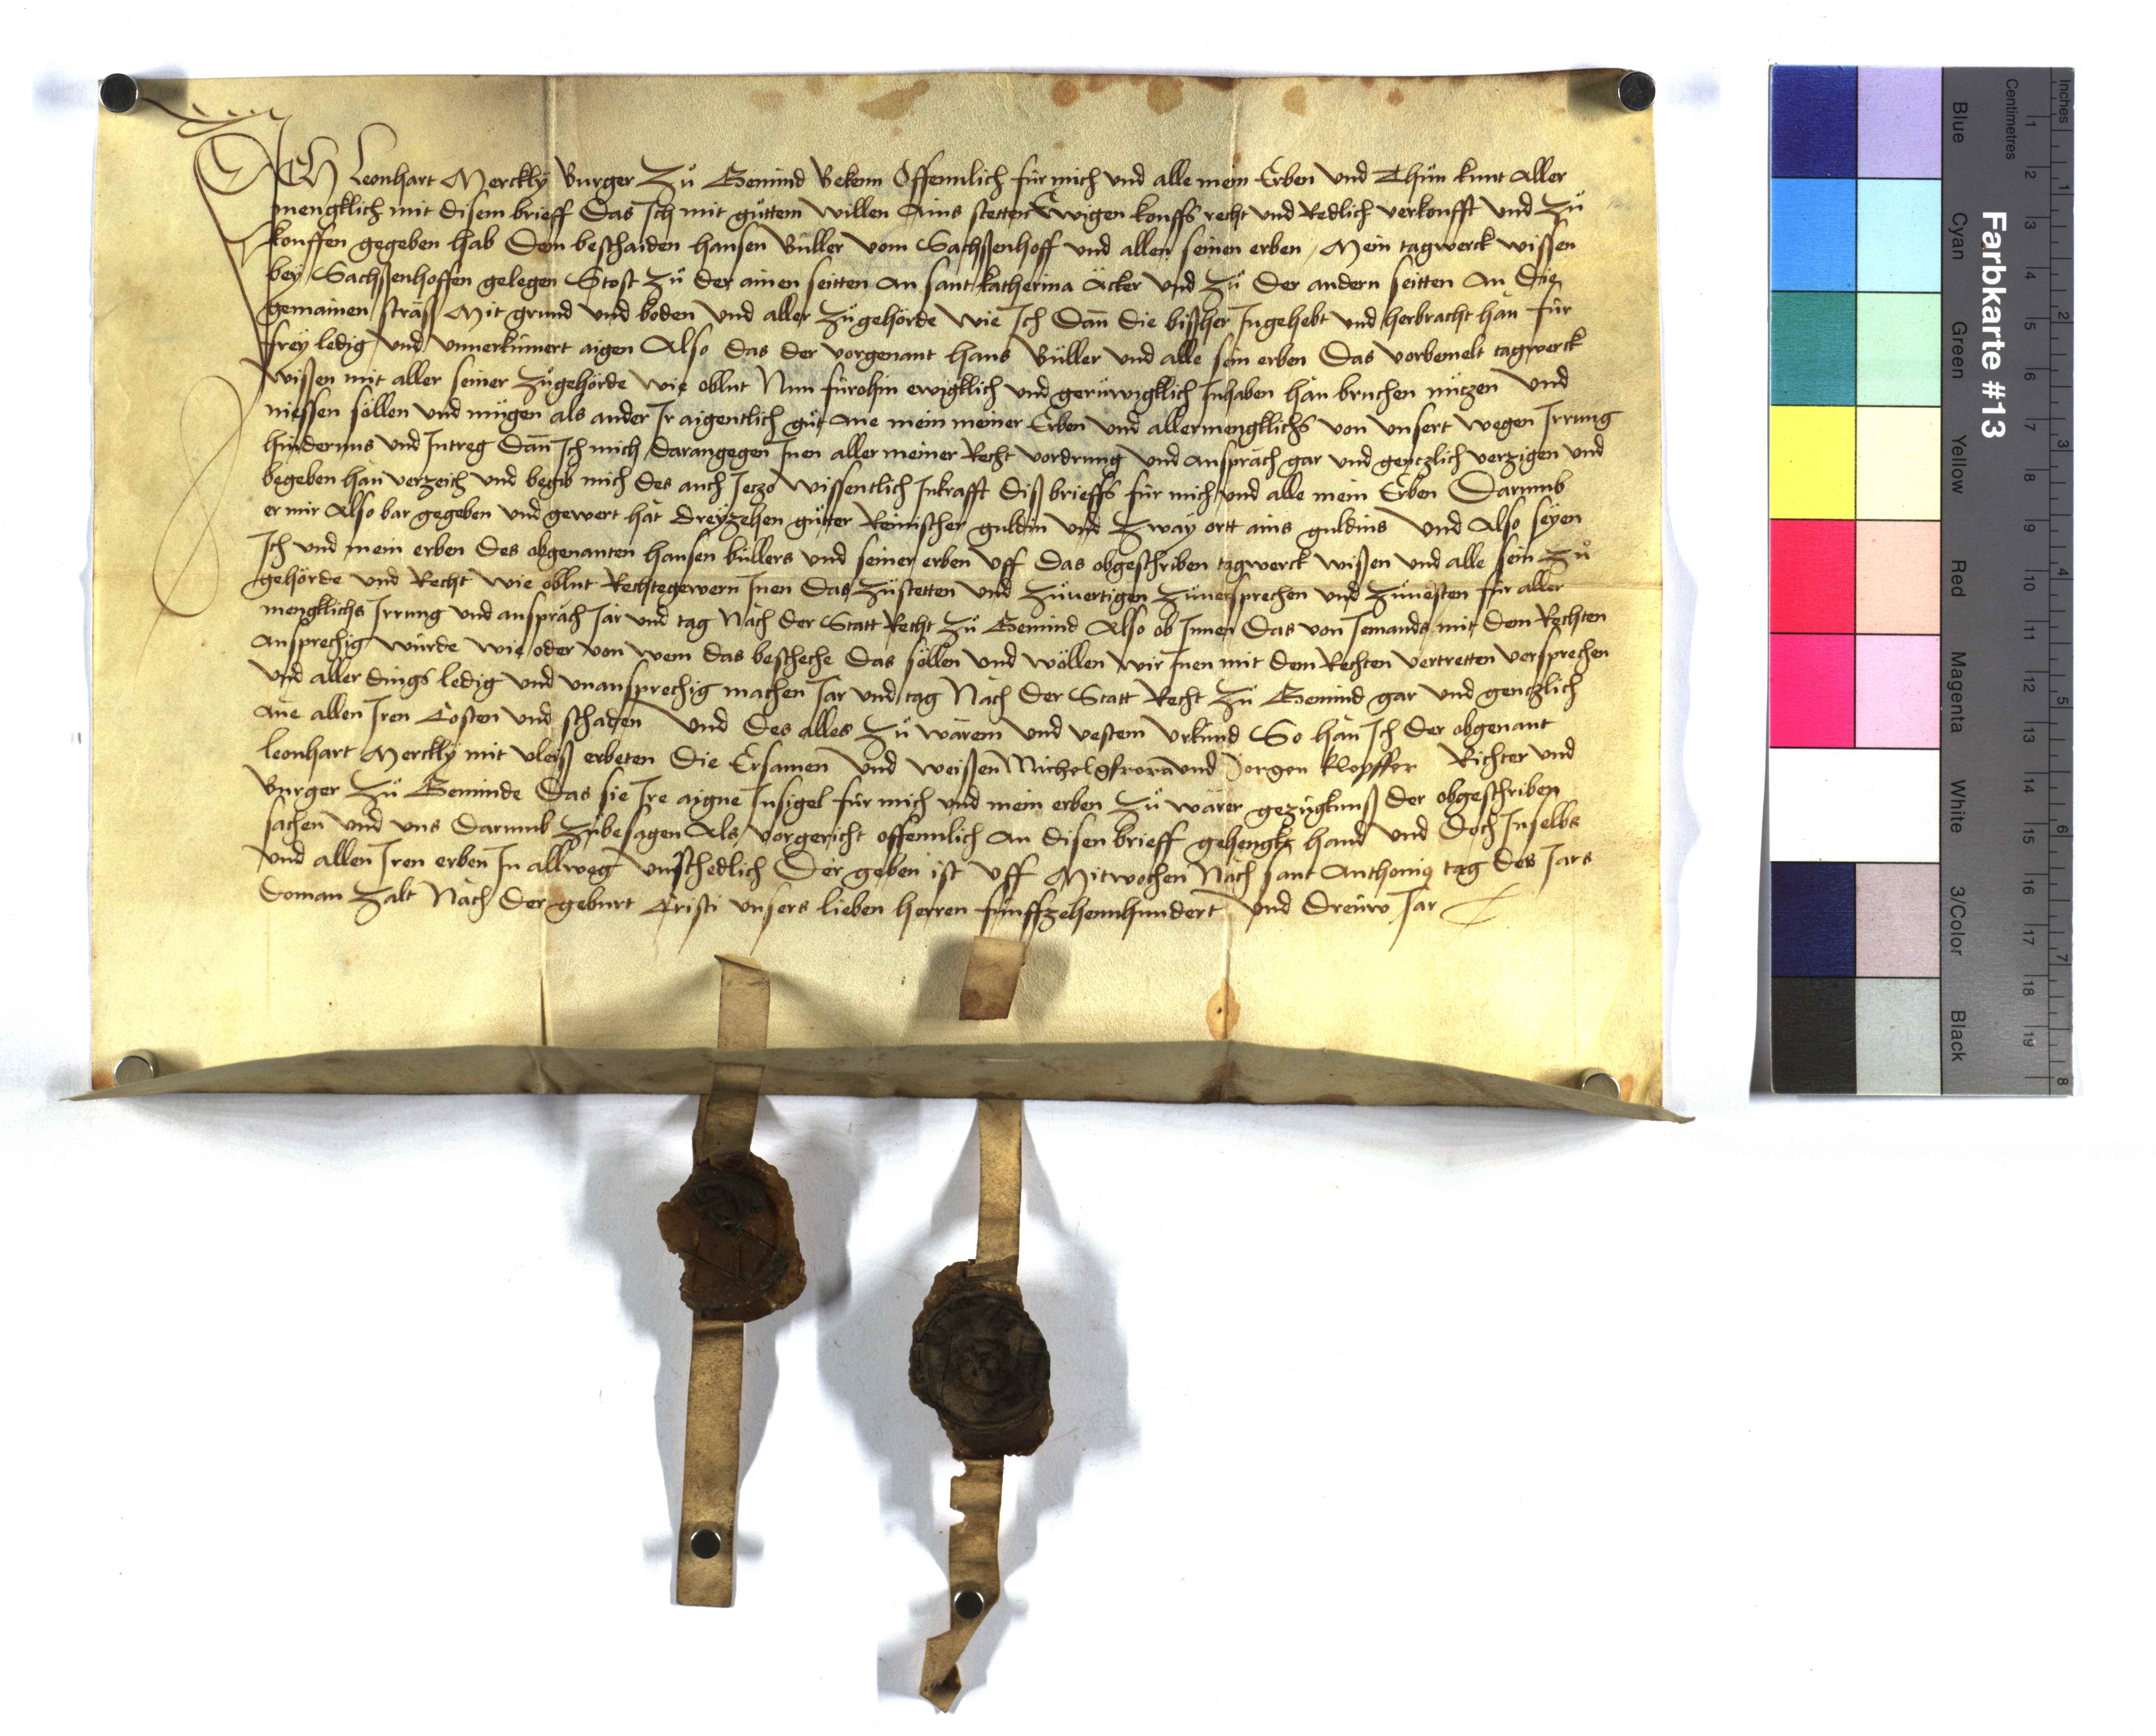 ICH Leonhart Merckly Burger Zů Gemind Bekenn Offennlich für mich vnd alle mein Erben vnd Thůn kunt aller
mengklich mit disem brieff Das Ich mit gůttem willen Ains stetten Ewigen kouffs recht vnd Redlich verkoufft vnd zů
kouffen gegeben hab Dem beschaiden hansen Büller vom Sachssenhoff vnd allen seinen erben Mein tagwerck wissen
bey Sachssenhoffen gelegen Stost zů der ainen seitten an sant katherina Äcker vnd zů der andern seitten an die
gemainen sträss Mit grund vnd boden vnd aller zůgehörde wie Ich Dan̄ die bissher Ingehebt vnd herbracht hän für
frey ledig vnd vnuerkümert aigen Also das der vorgenant hans Büller vnd alle sein erben Das vorbemelt tagwerck
wissen mit aller seiner zůgehörde wie oblut Nun fürohin ewigklich vnd gerüwigklich Inhaben hän bruchen nützen vnd
niessen söllen vnd mügen als ander Ir aigentlich gůt Ane mein meiner Erben vnd allermengklichs von vnsert wegen Irrung
hindernus vnd Intreg Dan̄ Ich mich darangegen Inen aller meiner Recht vordrung vnd anspräch gar vnd gentzlich verzigen vnd
begeben hän verzeich vnd begib mich des auch Ietzo wissentlich Inkrafft diss brieffs für mich vnd alle mein Erben Darumb
er mir Also bar gegeben vnd gewert hät dreyzehen gůtter Reinischer guldin vnd Zway ortt ains guldins vnd Also seyen
Ich vnd mein erben des obgenanten hansen büllers vnd seiner erben vff das obgeschriben tagwerck wissen vnd alle sein zů
gehörde vnd Recht wie oblut Rechtgewern Inen das zůstetten vnd zůuertigen zůuersprechen vnd zůuesten für aller
mengklichs Irrung vnd anspräch Iar vnd tag Näch der Statt Recht zů Gemind Also ob Innen das von Iemands mit dem Rechten
ansprechig würde wie oder von wem das bescheche Das söllen vnd wöllen wir Inen mit dem Rechten vertretten versprechen
vnd aller dings ledig vnd vnansprechig machen Iar vnd tag Näch der Statt Recht zů Gemind gar vnd gentzlich
äne allen Iren Costen vnd schaden vnd des alles zů wärem vnd vestem vrkünd So hän Ich der obgenant
Leonhart Merckly mit vleiss erbeten die Ersamen vnd weissen Michel vnd Jorgen Klopffer Richter vnd
Burger zů Geminde Das sie Ire aigne Insigel für mich vnd mein erben zů wärer gezügknuss der obgeschriben
sachen vnd vns darumb zůbesagen Als vorgericht offennlich an disen brieff gehengkt hand vnd doch Inselbs
vnd allen Iren erben In allweg vnschedlich Der geben ist vff Mitwochen Näch sant Anthonig tag des Iars
doman zalt Näch der geburt Cristi vnsers lieben herren fünffzehennhundert vnd dreüw Iar
Farbkarte #13
Blue
Cyan
Green
Yellow
Red
Magenta
White
3/Color
Black
Centimetres
1 2 3 4 5 6 7 8 9 10 11 12 13 14 15 16 17 18 19
Inches
1 2 3 4 5 6 7 8